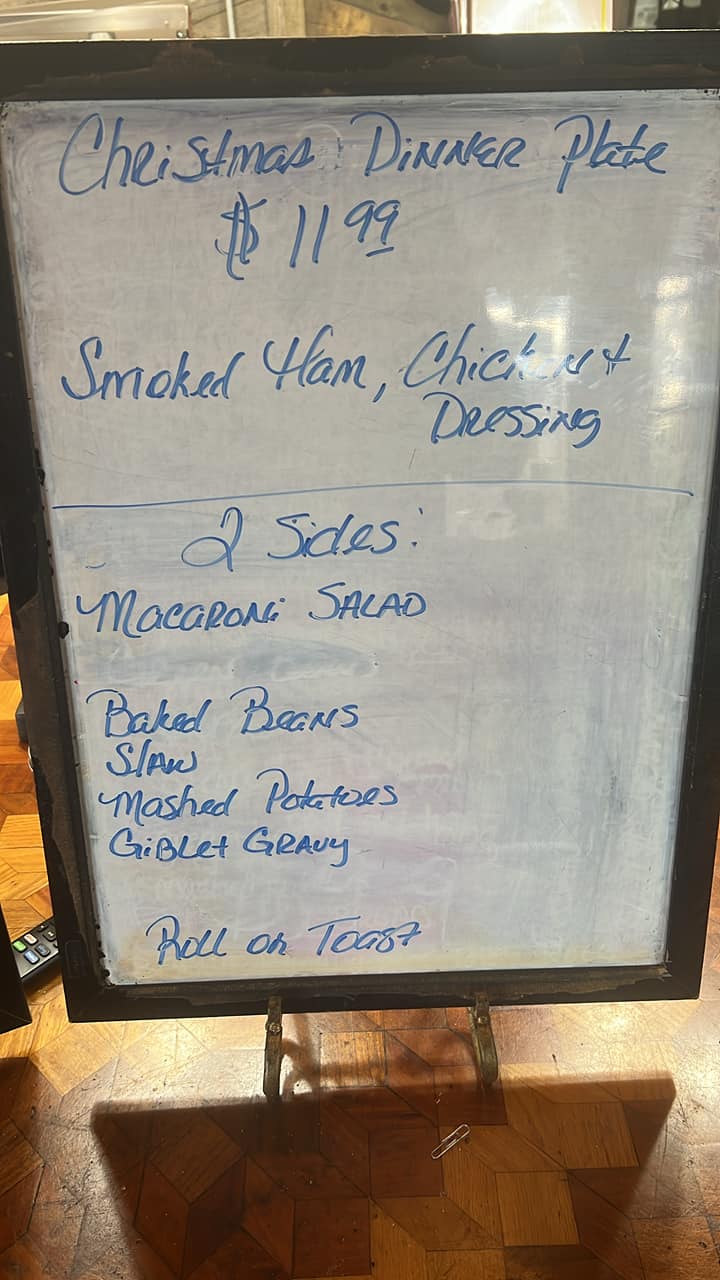 Christmas Dinner Plate
$11.99
Smoked Ham, Chicken +
Dressing
2 Sides:
Macaroni Salad
Baked Beans
Slaw
Mashed Potatoes
Giblet Gravy
Roll or Toast